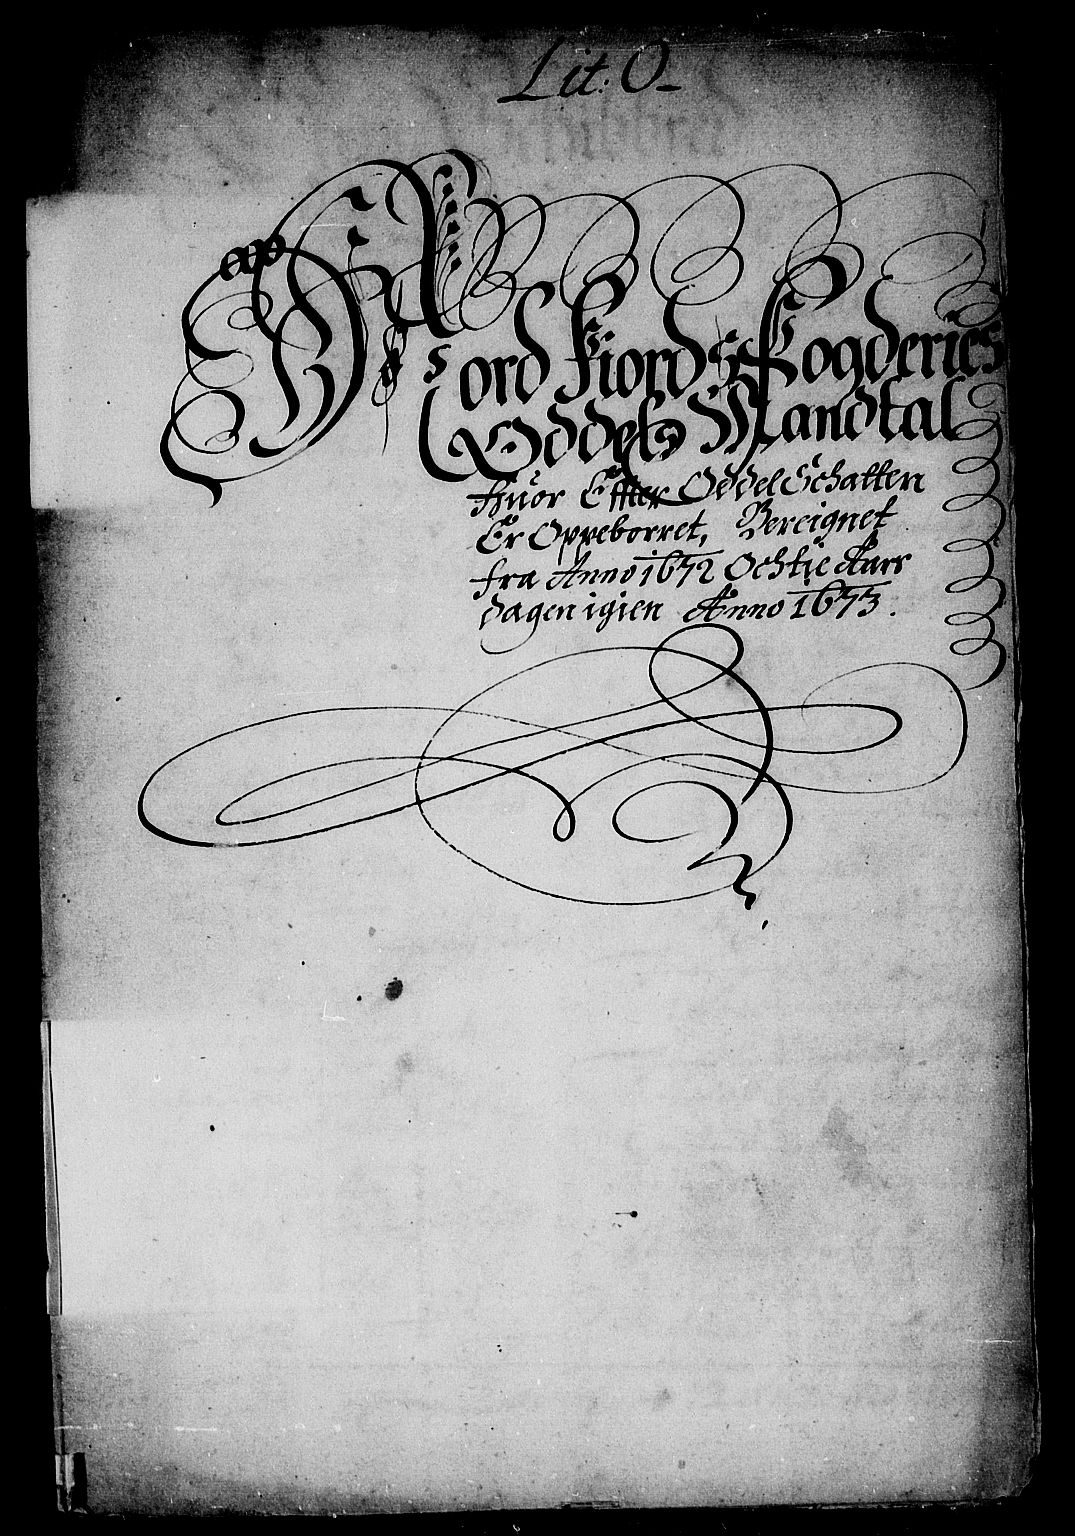 Lit: O
Nordfiords Fogderies
Oddels Mandtal
Huor Effter Oddel Schatten
Er Oppeborret, Bereignet
fra Anno 1672 Och til Aars
dagen igien Anno 1673.